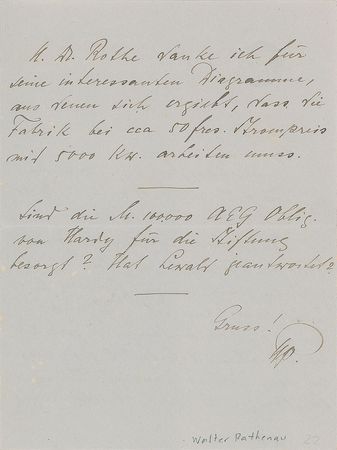 H. Dr. Rothe danke ich für
seine interessanten Diagramme,
aus denen sich ergiebt, dass die
Fabrik bei cca 50 frcs. Strompreis
mit 5000 Kw. arbeiten muss.
Sind die M. 100.000 AEG Oblig.
von Hardy für die Stiftung
besorgt? Hat Lewald geantwortet?
Gruss!
Walter Rathenau 22